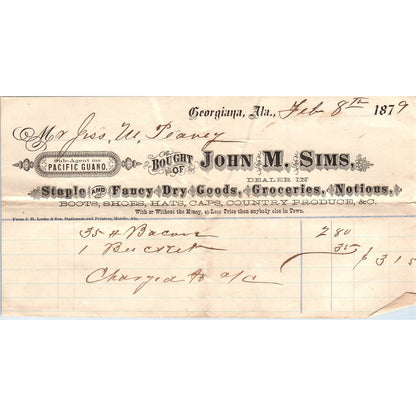 Georgiana, Ala., Feb 8th 1879
Mr Jas. M. Peavey
Sub-Agent for
PACIFIC GUANO.
BOUGHT OF JOHN M. SIMS,
DEALER IN
Staple AND Fancy Dry Goods, Groceries, Notions,
BOOTS, SHOES, HATS, CAPS, COUNTRY PRODUCE, &C.
With or Without the Money, at Less Price than anybody else in Town.
From J. H. Locke & Son, Stationers and Printers, Mobile, Ala.
35 # Bacon 2 80
1 Bucket 35 $ 3 15
Charged to a/c